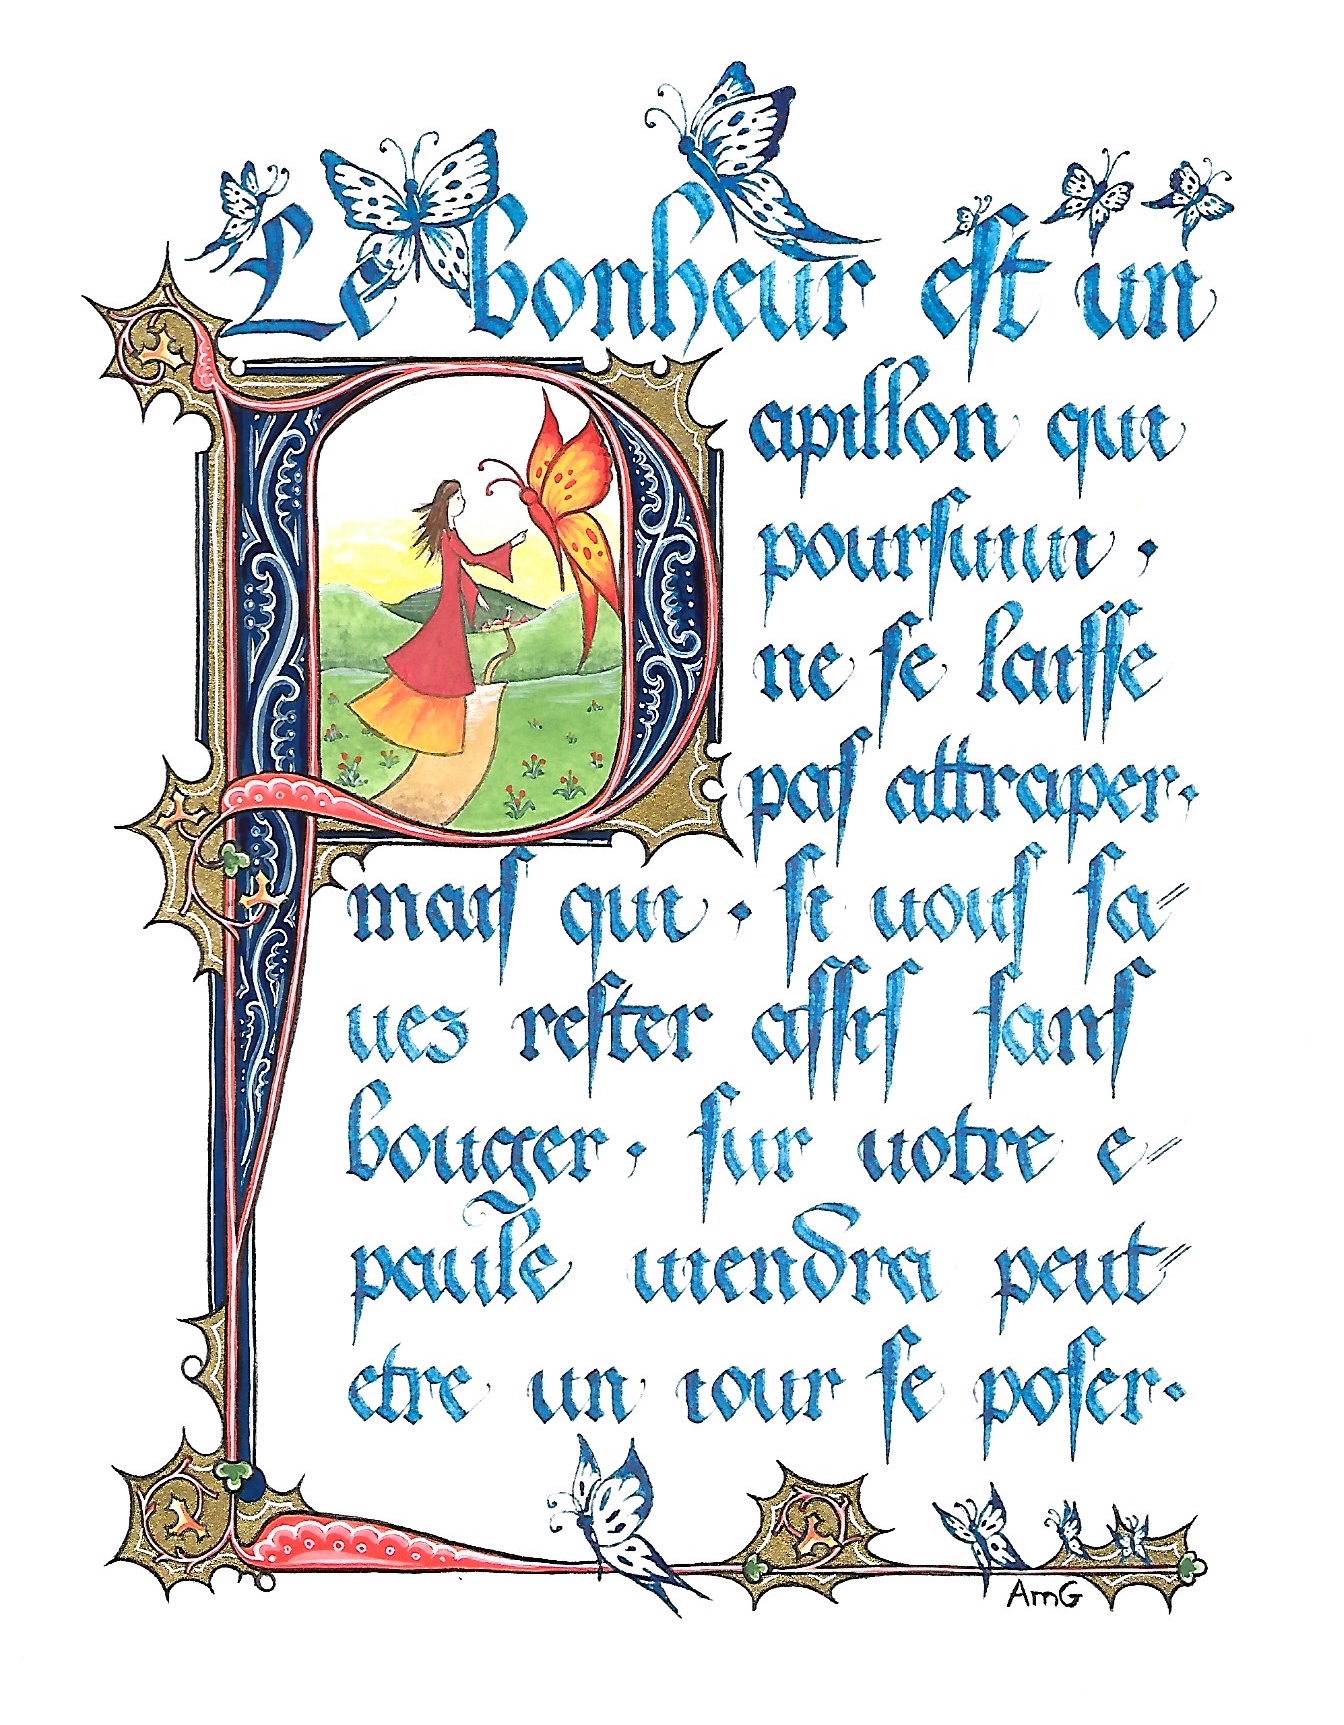 Le bonheur est un
Papillon qui
poursuivi ·
ne se laisse
pas attraper ·
mais qui · si vous sa=
vez rester assis sans
bouger · sur votre e=
paule viendra peut=
etre un jour se poser ·
AmG